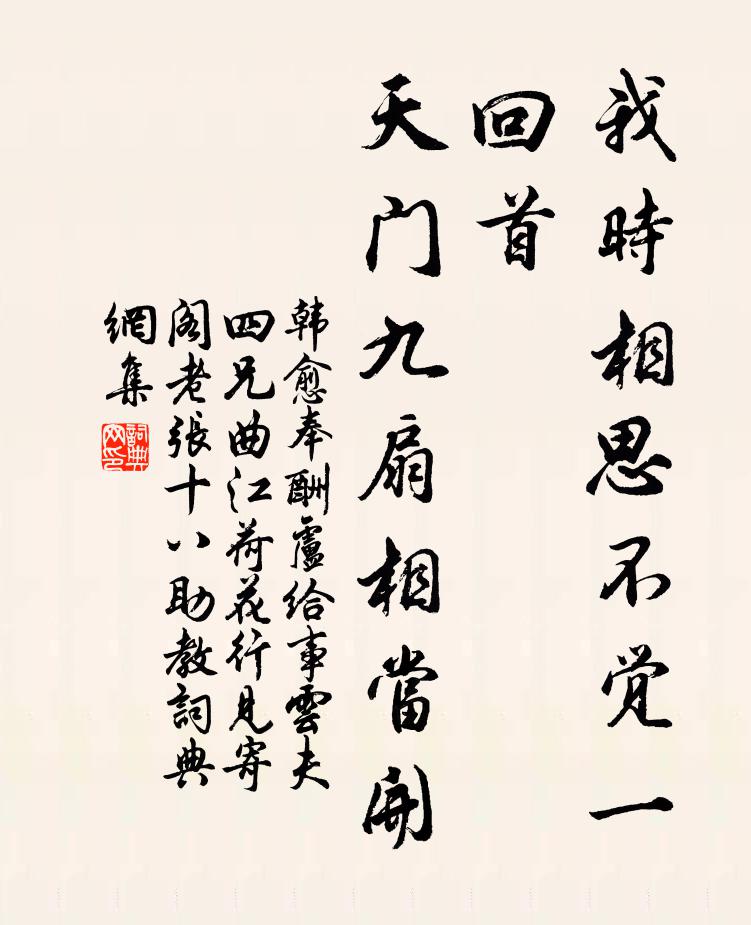 我時相思不觉一
回首
天门九扇相當開
韩愈奉酬盧给事雲夫
四兄曲江荷花行見寄
阁老張十八助教詞典
網集
詞典
网印